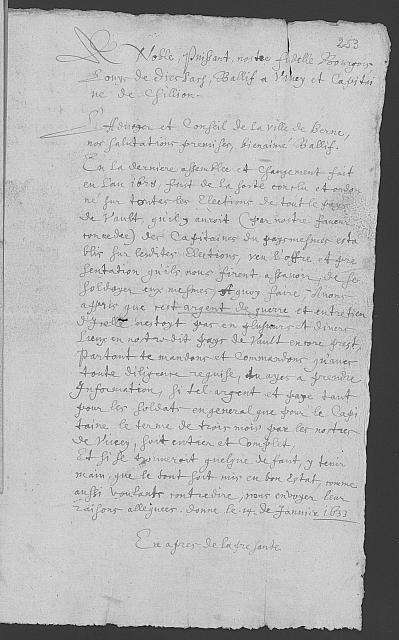 253
A Noble, Puissant, nostre fidelle Bourgeois
Louys de Diesbach, Ballif a Vivey et Capitai
ne de Chillion.
L'Advoyer et Conseil de la ville de Berne,
nos salutations premises, bienaimé Ballif.
En la derniere assemblee et changement fait
en l'an fust de la sorte conclu et ordon
né sur toutes les Elections de tout le pays
de Vault, qu'il y auroit (par nostre faveur
concedee) des Capitaines du pays mesmes esta
blis sur lesdites Elections, veu l'offre et pre
sentation qu'ils nous firent assavoir de se
soldoyer eux mesmes, A quoy faire, Avons
appris que cest argent de guerre et entretien
d'Icelle n'estoyt pas en plusieurs et divers
Lieux en nostredit pays de Vault encore prest,
Partant te mandons et Commandons qu'avec
toute diligence requise, tu ayes a prendre
Information, si tel argent et paye tant
pour les soldats en general que pour le Capi
taine le terme de trois mois par les nostres
de Vivey, soit entier et Complet,
Et si se trouveroit quelque defaut, y tenir
main, que le tout soit mis en bon Estat, comme
aussi voulants contredire, nous envoyer leur
raisons alleguees. donné le 14. de Janvier 1633
En apres de la presante